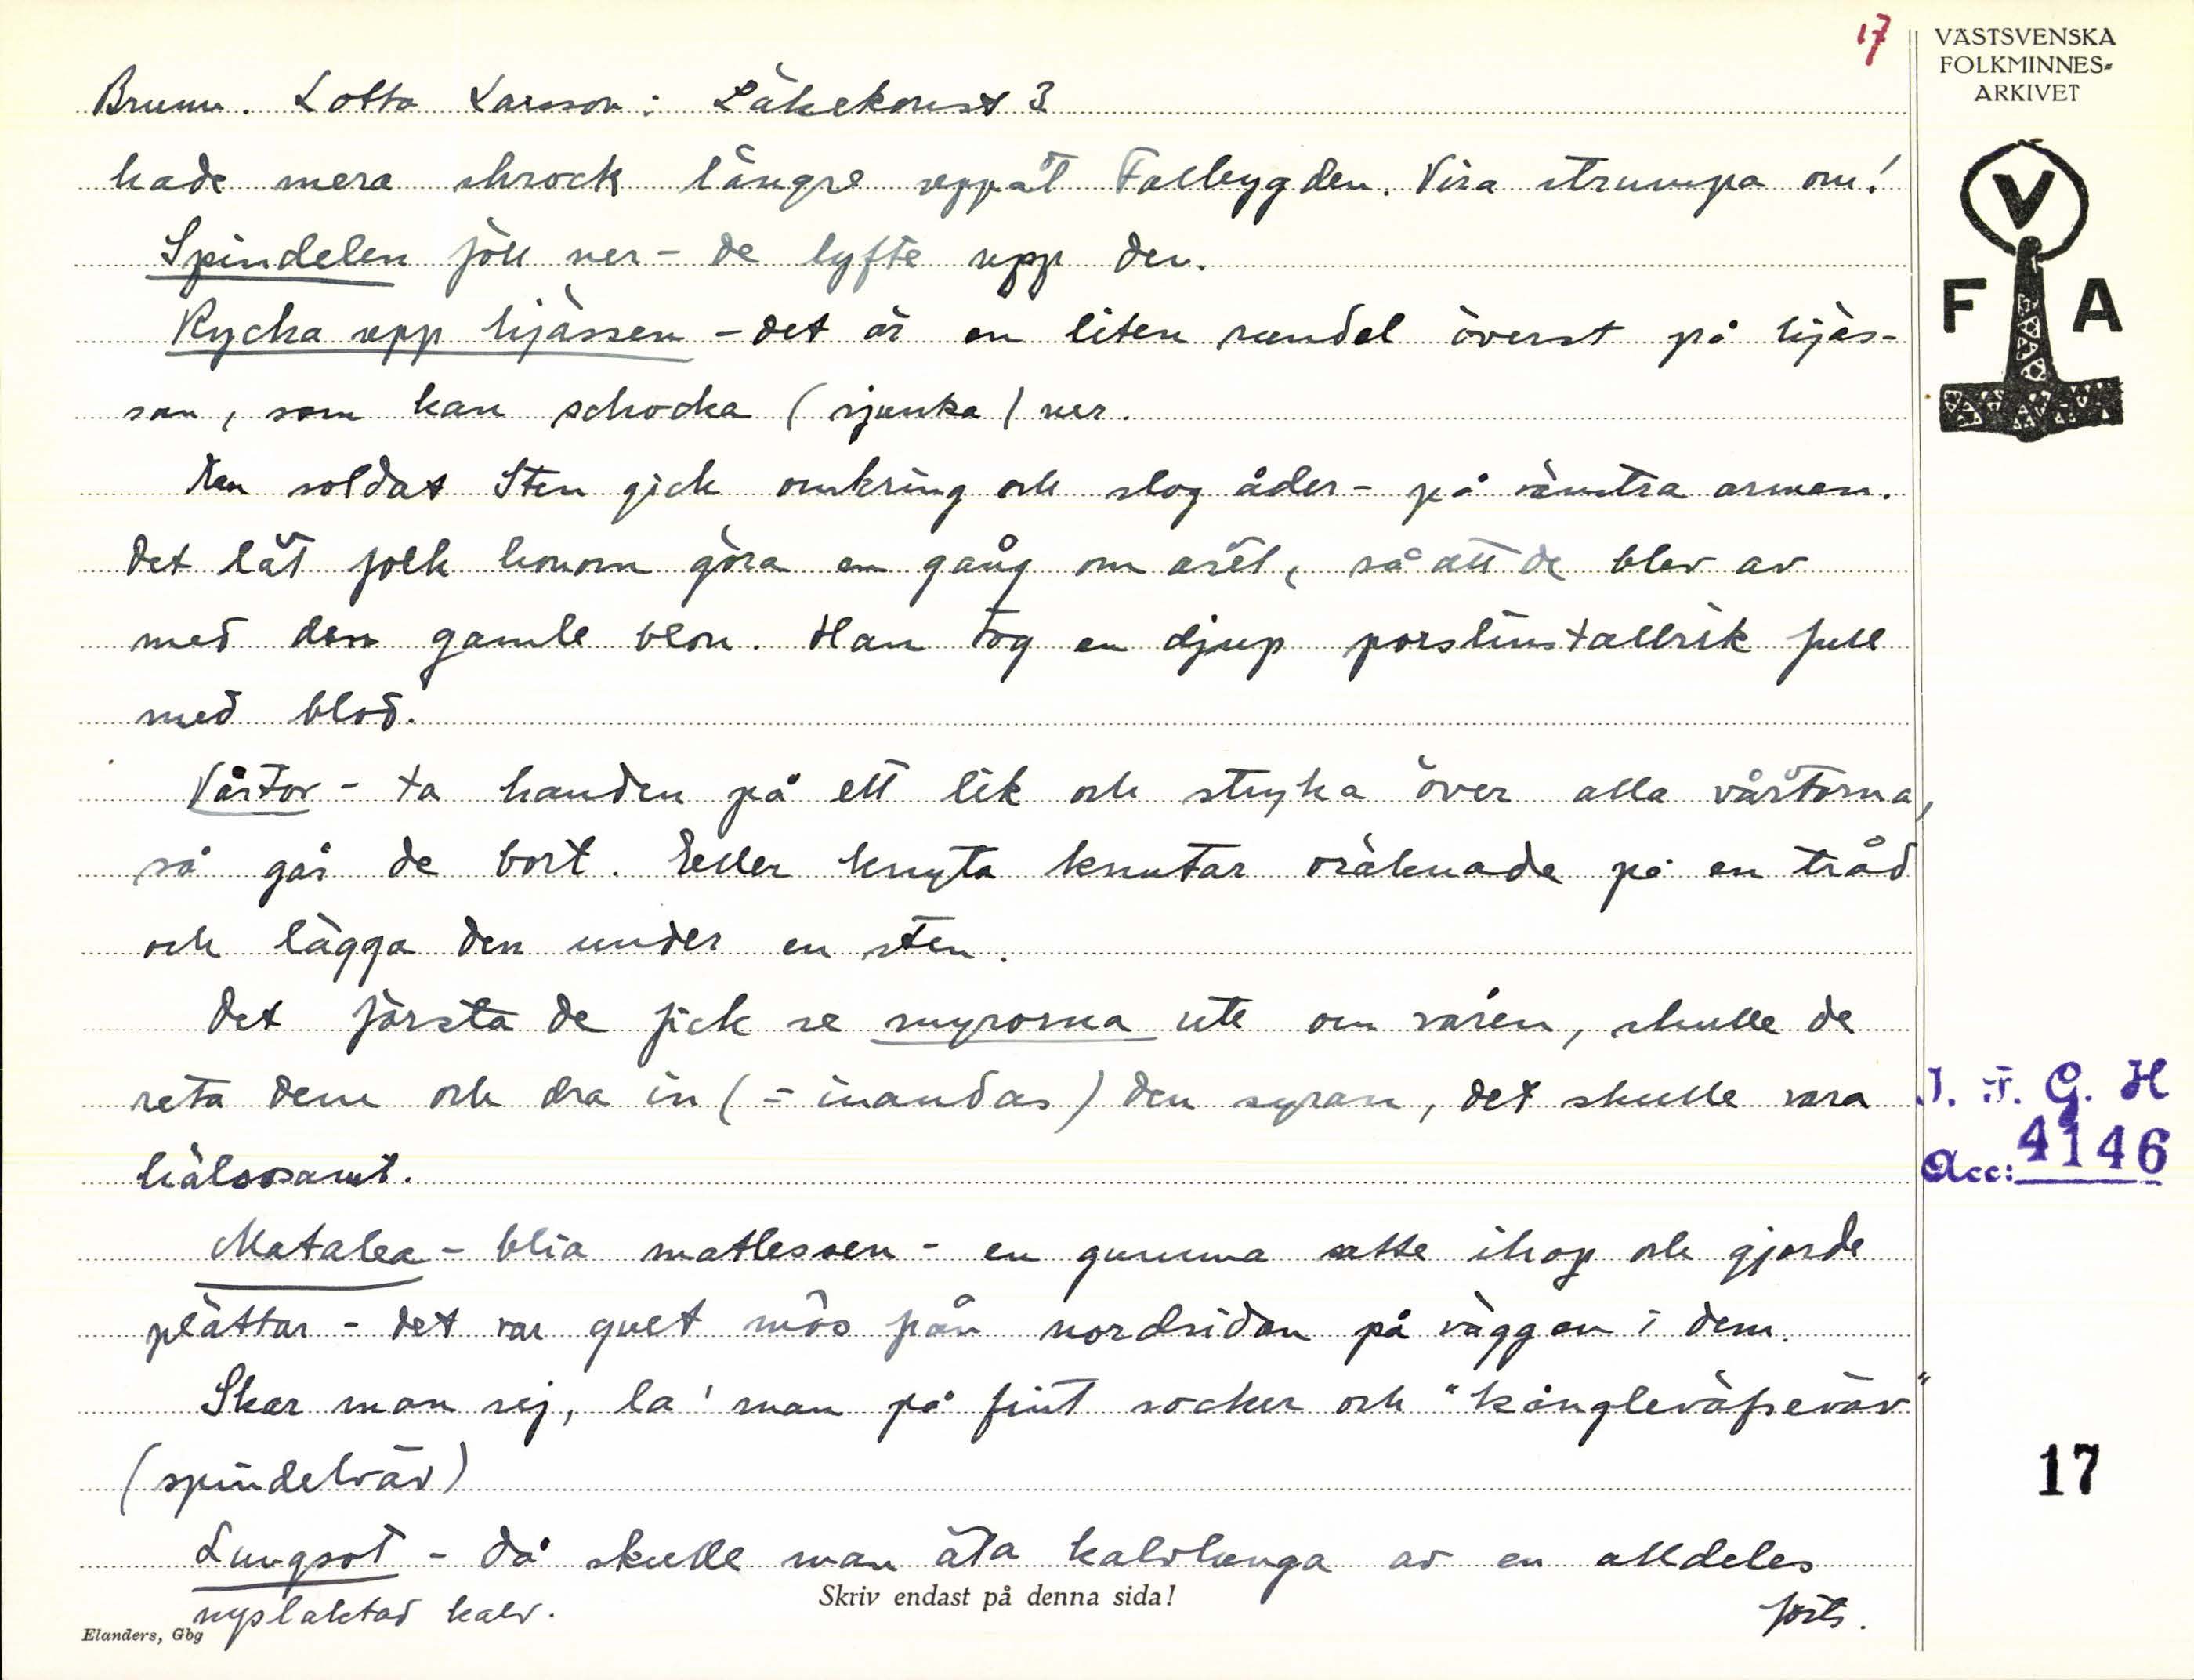 17
VÄSTSVENSKA
FOLKMINNES-
ARKIVET
Brunn. Lotta Larsson: Läkekonst 3
hade mera skrock längre uppåt Falbygden. Vira strumpa om!
V
F A
Spindelen föll ner - de lyfte upp den.
Rycka upp hjässen - det är en liten rundel överst på hjäs-
san, som kan schocka (sjunka) ner.
Den soldat Sten gick omkring och slog åder - på vänstra armen.
Det lät folk honom göra en gång om året, så att de blev av
med den gamle blon. Han tog en djup porslinstallrik full
med blod.
Vårtor - ta handen på ett lik och stryka över alla vårtorna,
så går de bort. Eller knyta knutar oräknade på en tråd
och lägga den under en sten.
Det första de fick se myrorna ute om våren, skulle de
reta dem och dra in (= inandas) den syran, det skulle vara
hälsosamt.
I. F. G. H
Acc: 4146
Matalea - blia matlessen - en gumma satte ihop och gjorde
plättar - det var gult mos från nordsidan på väggen i dem.
Skar man sej, la' man på fint socker och "kångleväfseväv"
(spindelväv)
17
Lungsot - då skulle man äta kalvlunga av en alldeles
nyslaktad kalv.
forts.
Skriv endast på denna sida!
Elanders, Gbg